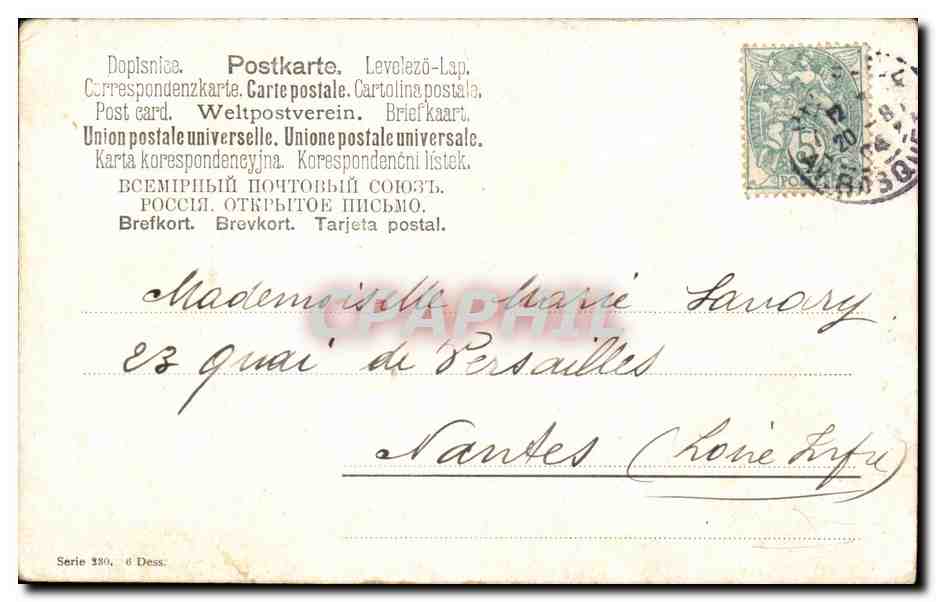 Dopisnice. Postkarte. Levelező-Lap.
Correspondenzkarte. Carte postale. Cartolina postale.
Post card. Weltpostverein. Briefkaart.
Union postale universelle. Unione postale universale.
Karta korespondencyjna. Korespondenční lístek.
ВСЕМІРНЫЙ ПОЧТОВЫЙ СОЮЗЪ.
РОССІЯ. ОТКРЫТОЕ ПИСЬМО.
Brefkort. Brevkort. Tarjeta postal.
Mademoiselle Marie Savary
23 quai de Versailles
Nantes (Loire Infre)
CPAPHIL
Serie 330. 6 Dess.